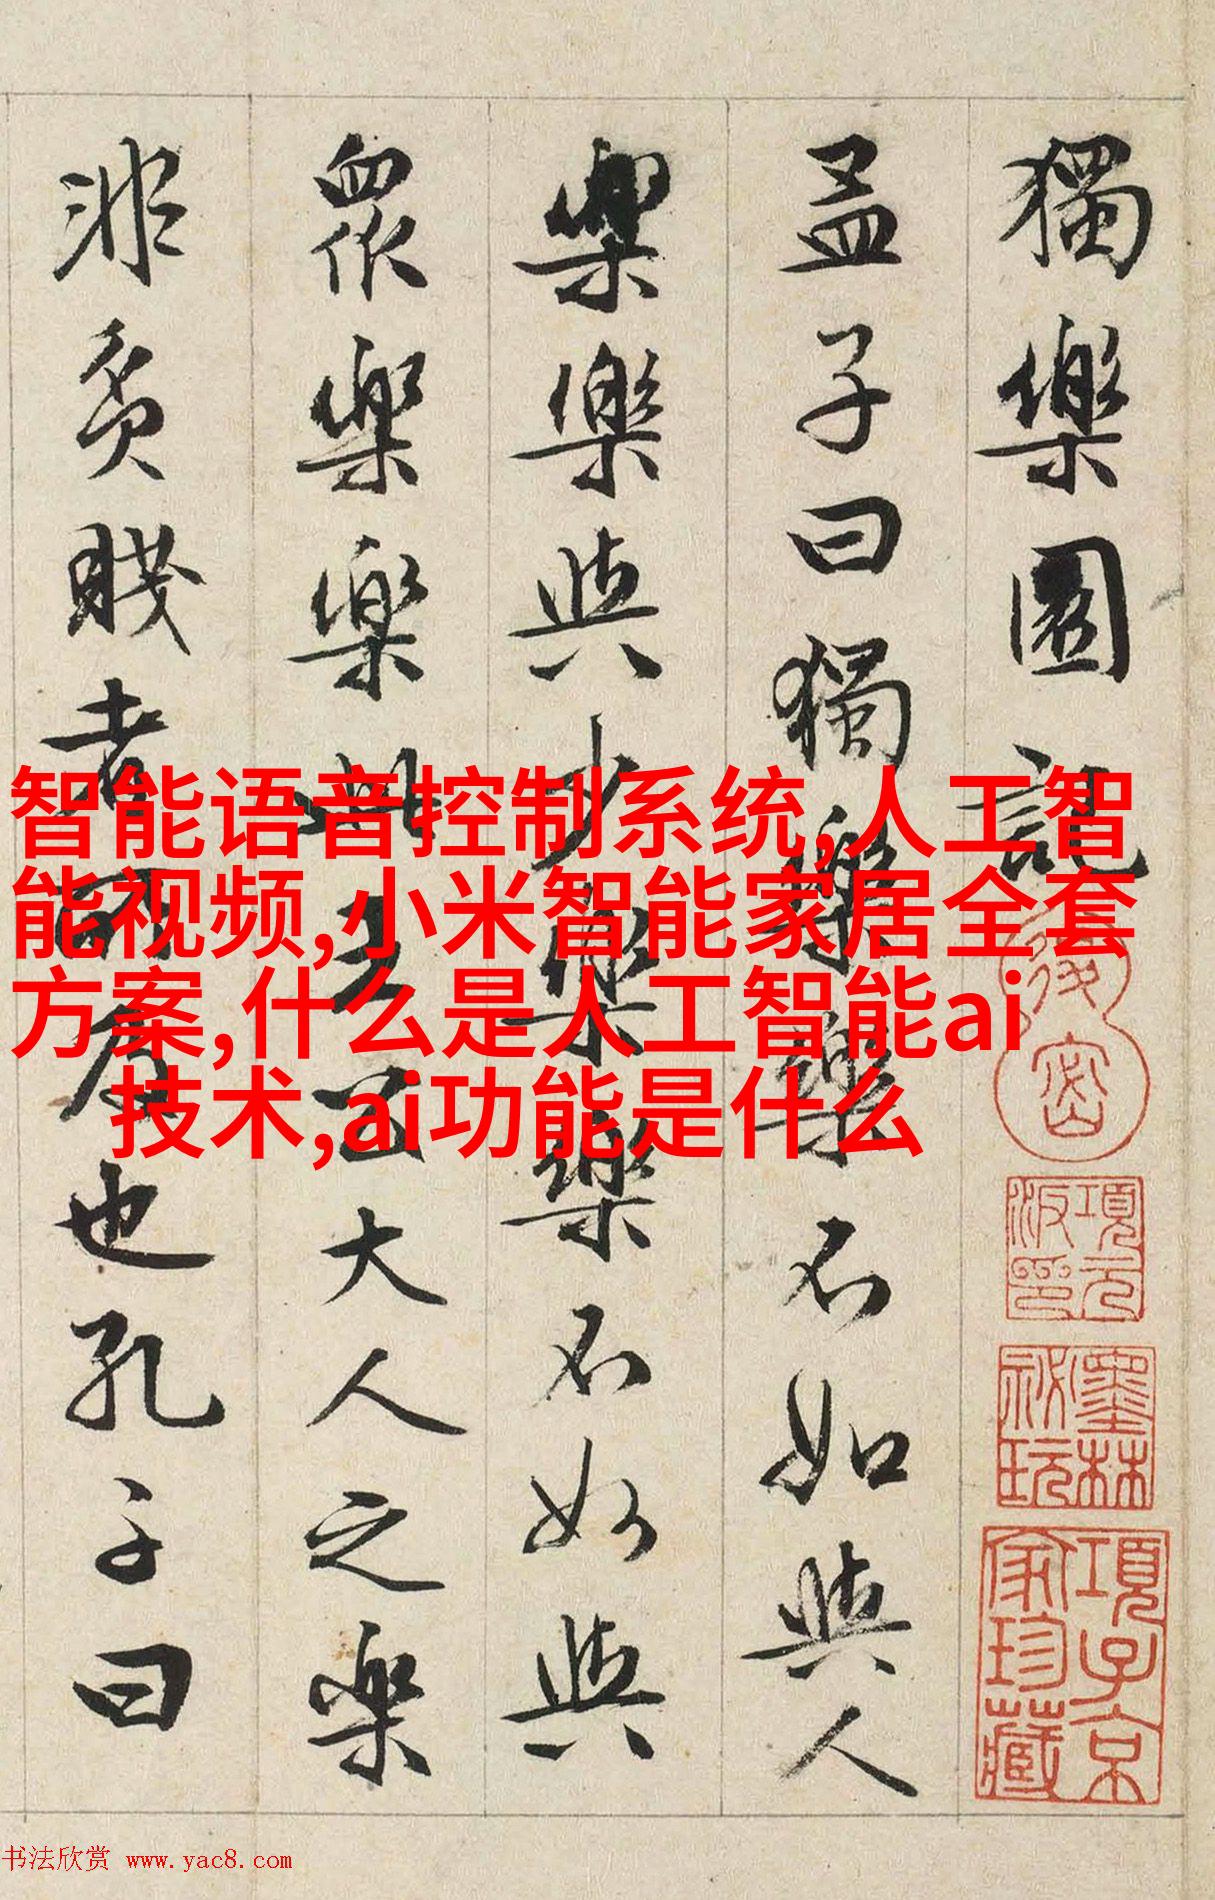 獨樂園記
孟子曰獨樂樂不如與人
樂樂與少樂樂不如與
眾樂樂此王公大人之樂
非貧賤者所及也孔子曰
智能语音控制系统,人工智
能视频,小米智能家居全套
方案,什么是人工智能ai
技术,ai功能是什么
項元汴印
墨林祕玩
項子京家珍藏
书法欣赏 www.yac8.com